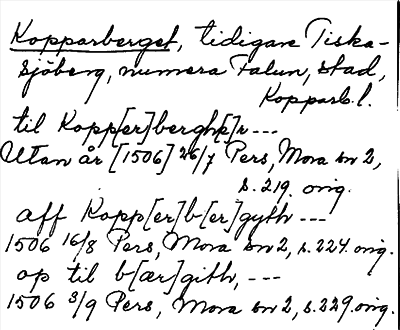 Kopparberget, tidigare Tiska-
sjöberg, numera Falun, stad,
Kopparb.l.
til Kopp[er]bergh[e]r ---
Utan år [1506] 26/7 Pers, Mora sn 2,
s. 219. orig.
aff Kopp[er]b[er]gyth ---
1506 16/8 Pers, Mora sn 2, s. 224. orig.
op til b[ær]gith, ---
1506 3/9 Pers, Mora sn 2, s. 229. orig.